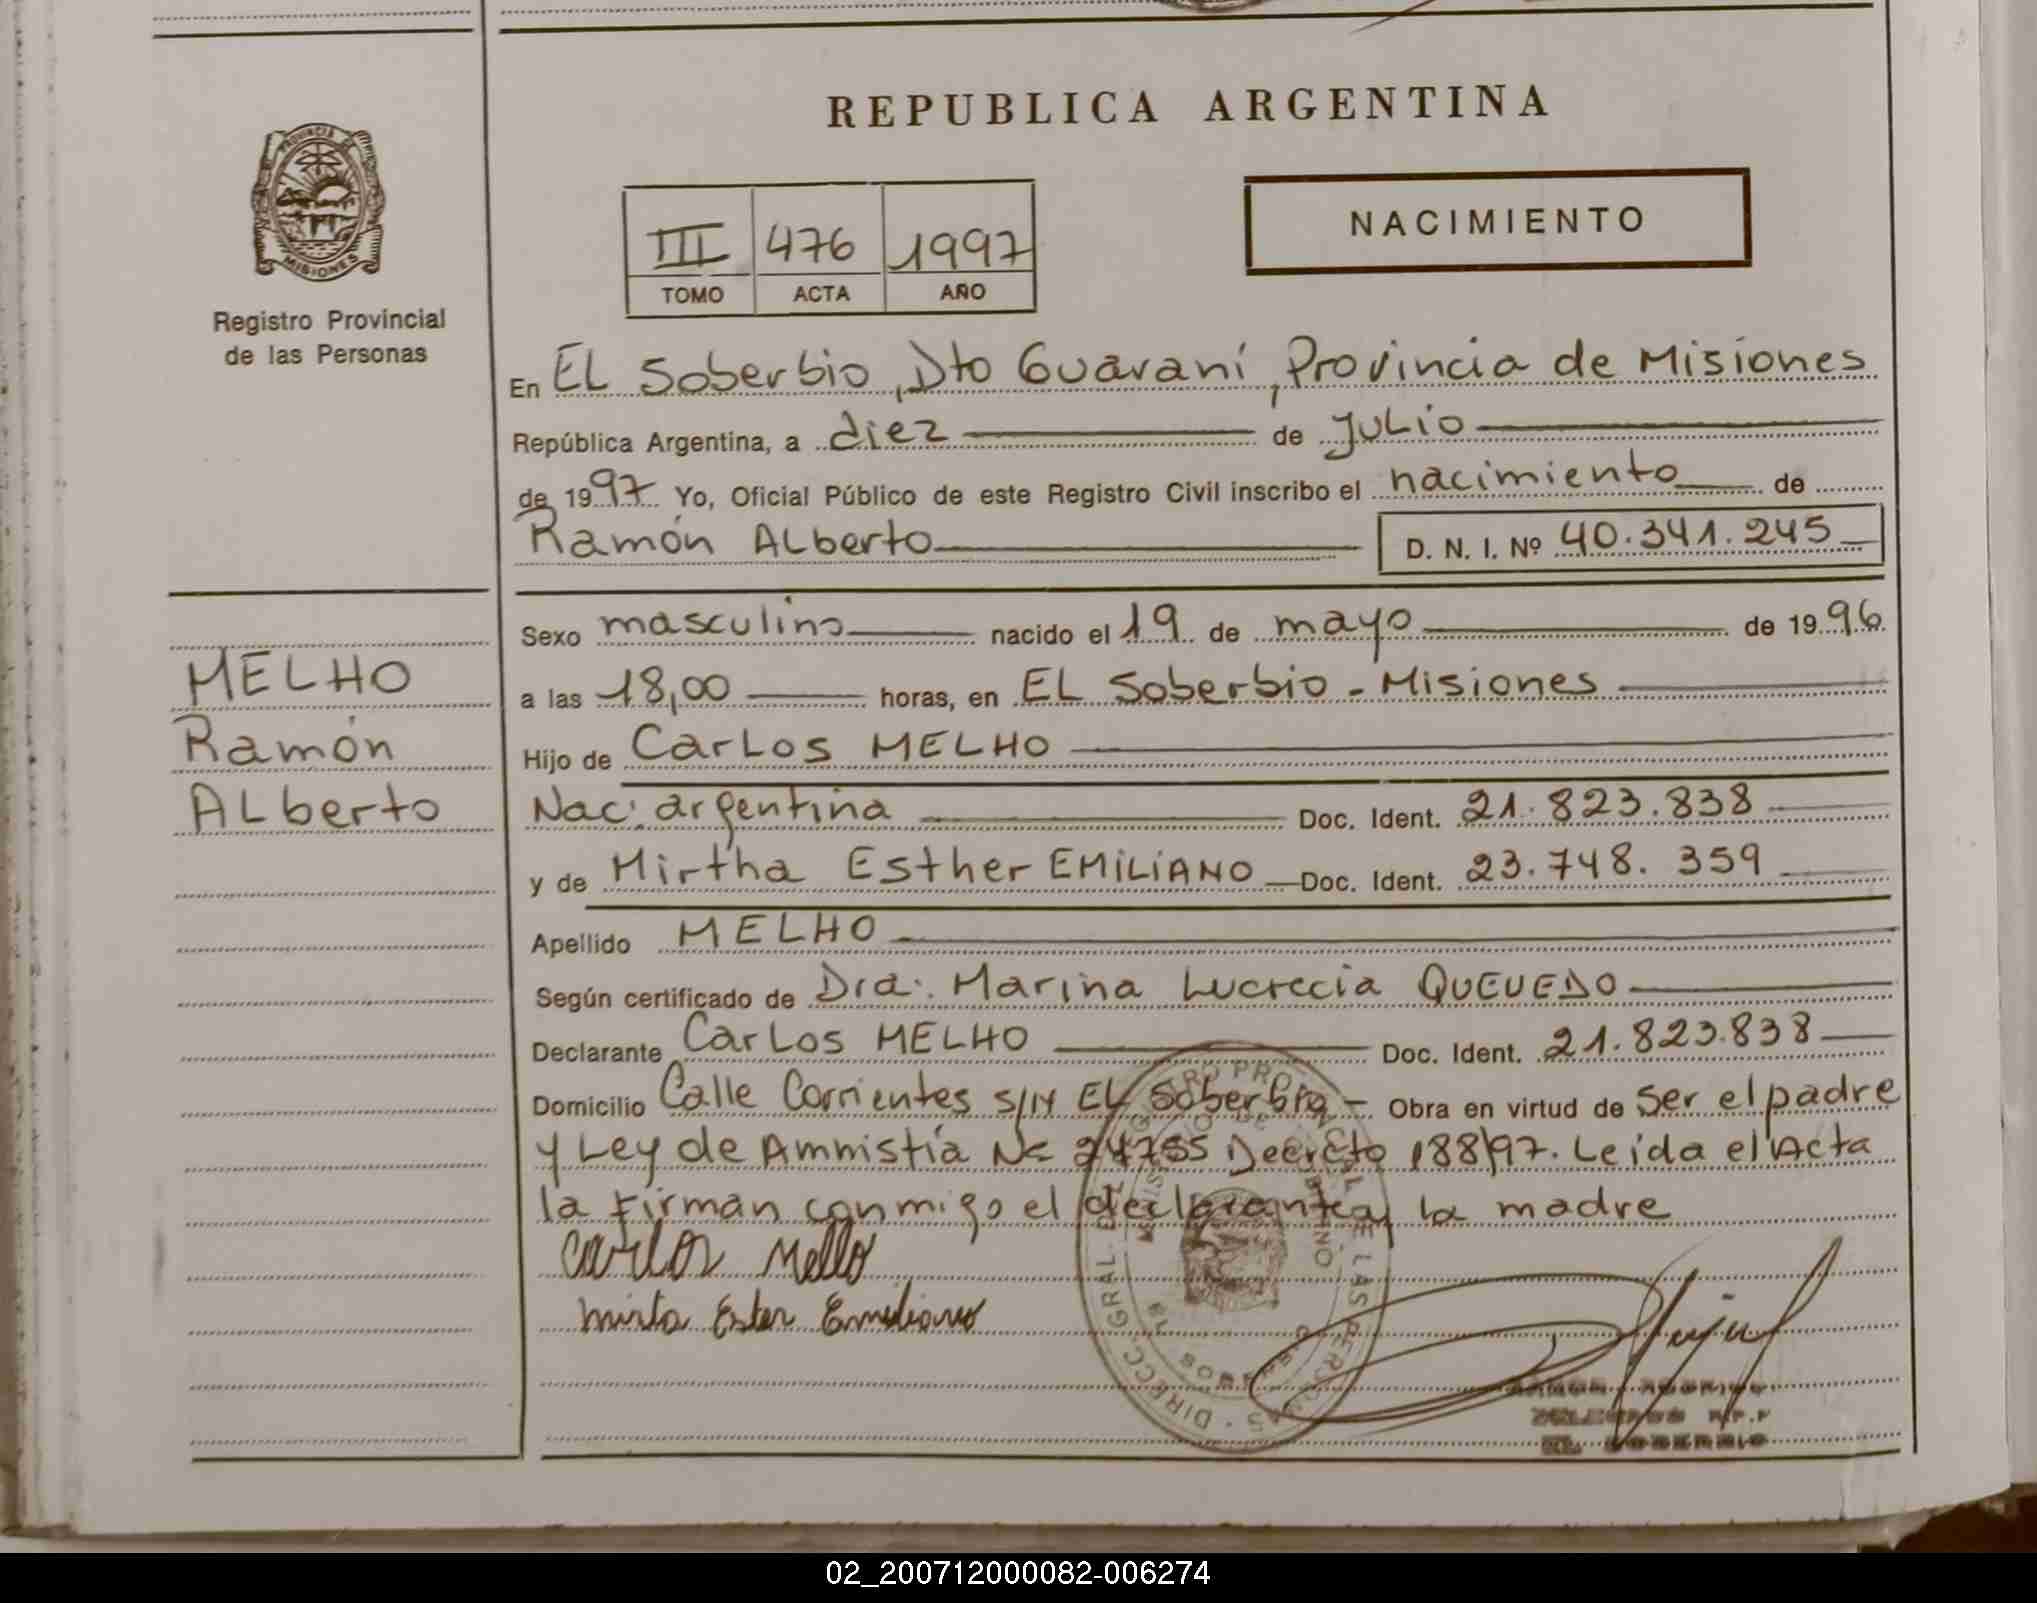 REPUBLICA ARGENTINA
PROVINCIA DE
MISIONES
Registro Provincial
de las Personas
III 476 1997
TOMO ACTA AÑO
NACIMIENTO
En EL Soberbio, Dto Guaraní, Provincia de Misiones
República Argentina, a diez de Julio
de 1997 Yo, Oficial Público de este Registro Civil inscribo el nacimiento de
Ramón ALberto D. N. I. Nº 40.341.245
MELHO
Ramón
ALberto
Sexo masculino nacido el 19 de mayo de 1996
a las 18,00 horas, en EL Soberbio - Misiones
Hijo de CarLos MELHO
Nac: argentina Doc. Ident. 21.823.838
y de Mirtha Esther EMILIANO Doc. Ident. 23.748.359
Apellido MELHO
Según certificado de Dra: Marina Lucrecia QUEVEDO
Declarante CarLos MELHO Doc. Ident. 21.823.838
Domicilio Calle Corrientes S/N EL Soberbio - Obra en virtud de Ser el padre
y Ley de Amnistía Nº 24755 Decreto 188/97. Leída el Acta
la firman conmigo el declarante y la madre
Carlos Mello
Mirta Ester Emiliano
EL SOBERBIO
02_200712000082-006274